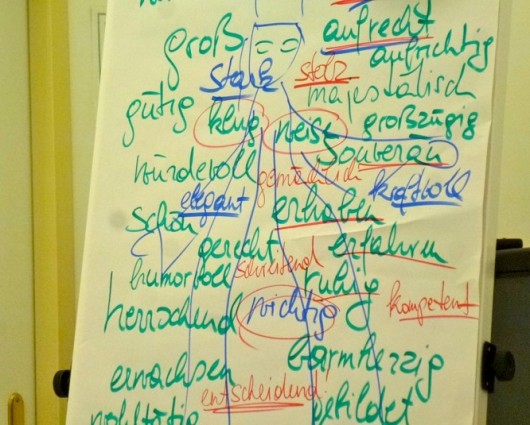 aufrecht
groß aufrichtig
stark stolz
majestätisch
gütig klug weise großzügig
souverän
würdevoll gemächlich kraftvoll
elegant
schön erhaben
gerecht erfahren
humorvoll schreitend ruhig
herrschend wichtig kompetent
erwachsen barmherzig
entscheidend
wohltätig gebildet